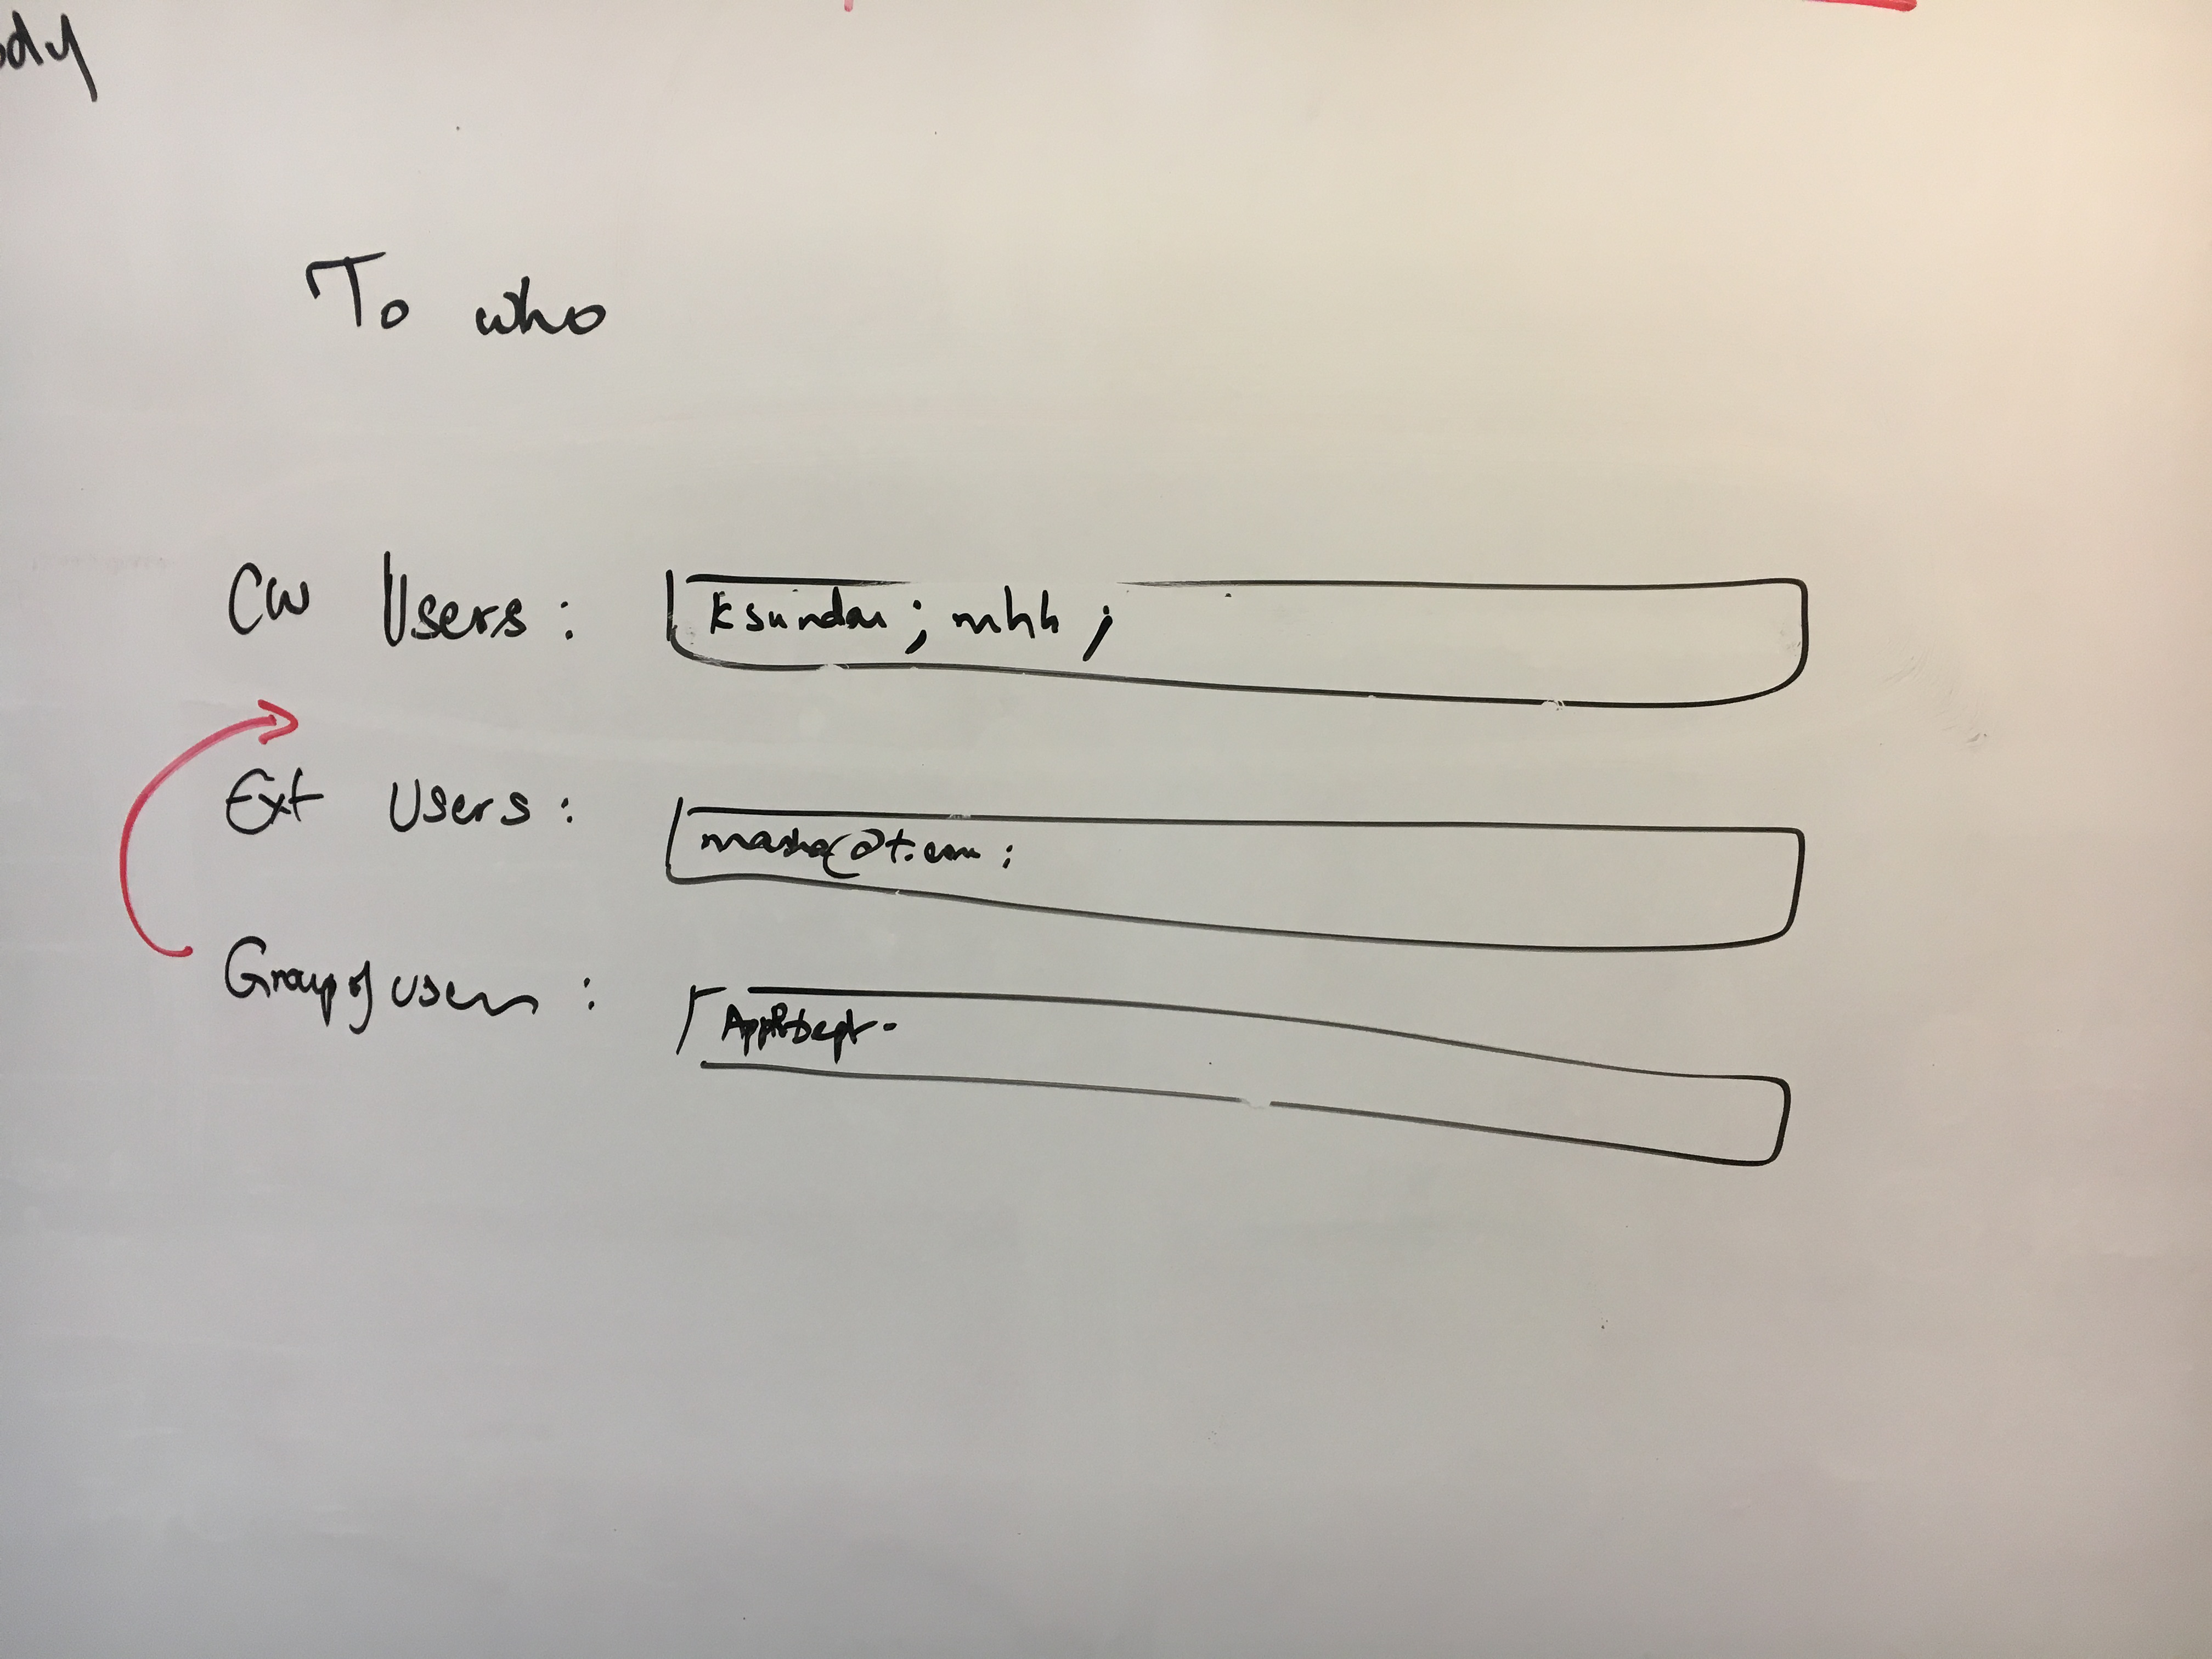 ody
To who
CW Users : ksundar ; mhh ;
Ext Users : masha@t.com ;
Group of users :